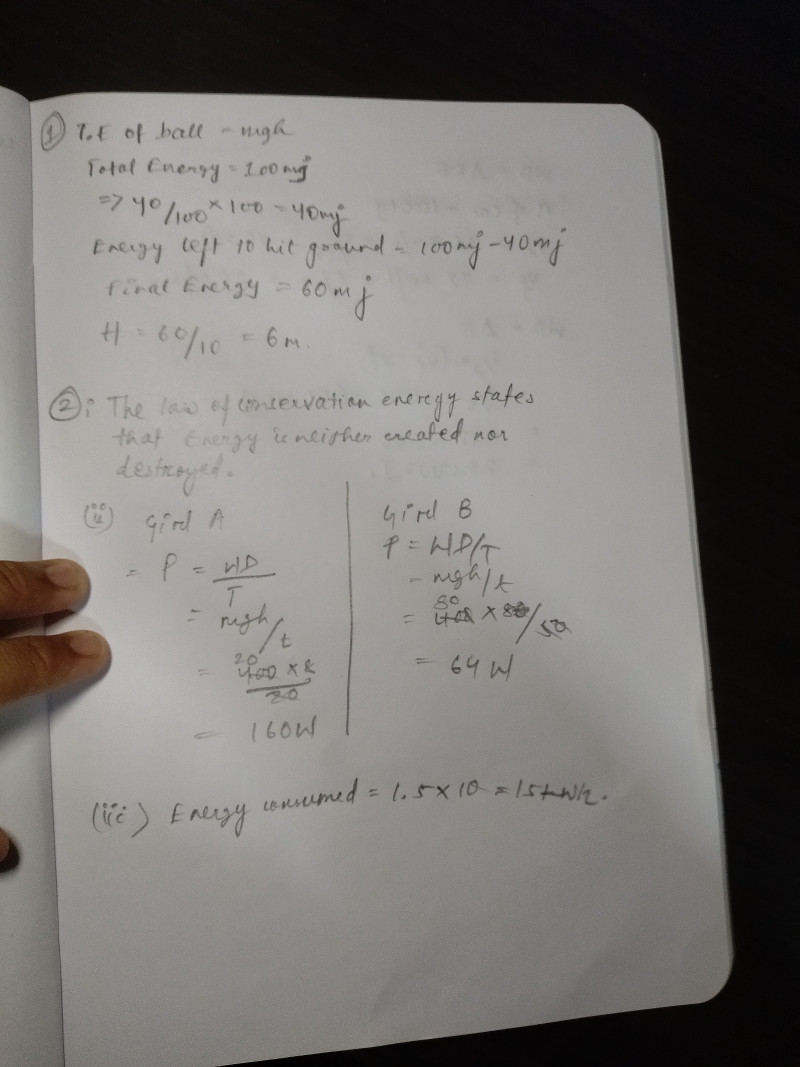 ① T.E of ball = mgh
Total Energy = 100 mj
=> 40/100 × 100 = 40mj
Energy left to hit ground = 100mj - 40mj
Final Energy = 60mj
H = 60/10 = 6m.
②: The law of conservation energy states
that Energy is neither created nor
destroyed.
(ii) Girl A
= P = WD/T
= mgh/t
20
= 400 × 8/20
= 160W
Girl B
P = WD/T
= mgh/t
80
= 400 × 8/50
= 64 W
(iii) Energy consumed = 1.5 × 10 = 15 kWh.